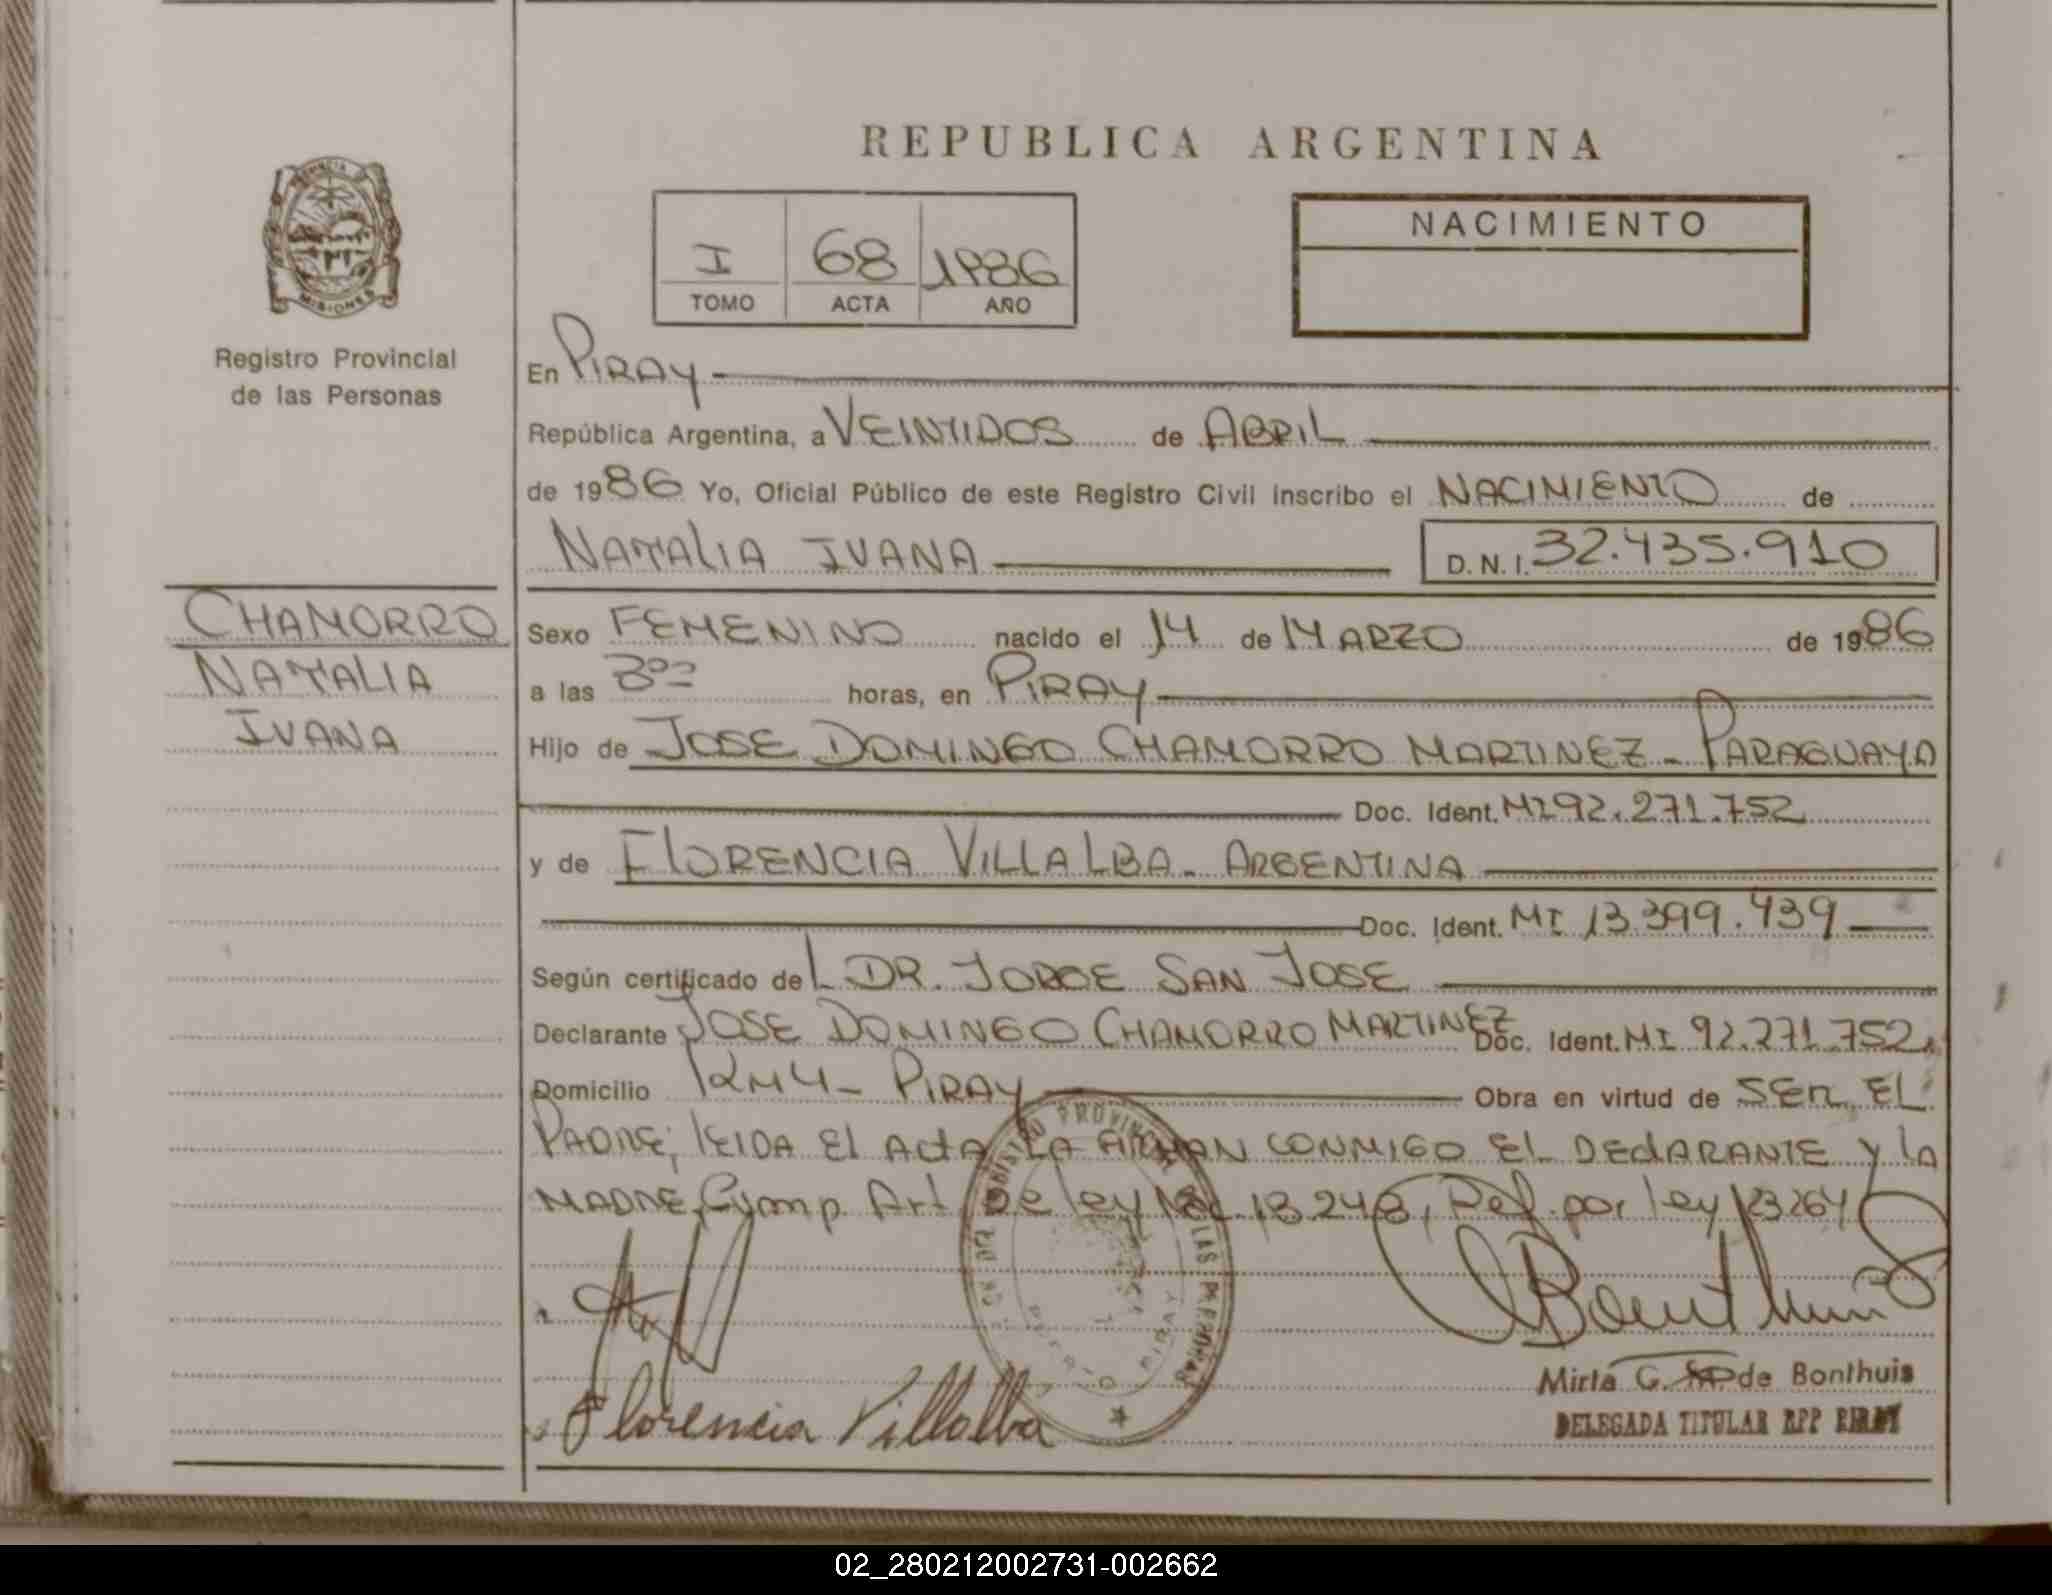 REPUBLICA ARGENTINA
PROVINCIA DE
MISIONES
Registro Provincial
de las Personas
I 68 1986
TOMO ACTA AÑO
NACIMIENTO
En PIRAY
República Argentina, a VEINTIDOS de ABRIL
de 1986 Yo, Oficial Público de este Registro Civil inscribo el NACIMIENTO de
NATALIA IVANA D.N.I. 32.435.910
CHAMORRO
NATALIA
IVANA
Sexo FEMENINO nacido el 14 de MARZO de 1986
a las horas, en PIRAY
Hijo de JOSE DOMINGO CHAMORRO MARTINEZ - PARAGUAYA
Doc. Ident. MI 92.271.752
y de FLORENCIA VILLALBA - ARGENTINA
Doc. Ident. MI 13.399.439
Según certificado del DR. JORGE SAN JOSE
Declarante JOSE DOMINGO CHAMORRO MARTINEZ Doc. Ident. MI 92.271.752
Domicilio KM 4 - PIRAY Obra en virtud de SER EL
PADRE; LEIDA El ACTA LA FIRMAN CONMIGO EL DEClARANTE y la
MADRE, Cump. Art. De ley 18.248, Ref. por ley 23264
Florencia Villalba
Mirta G. de Bonthuis
DELEGADA TITULAR RPP PIRAY
02_280212002731-002662